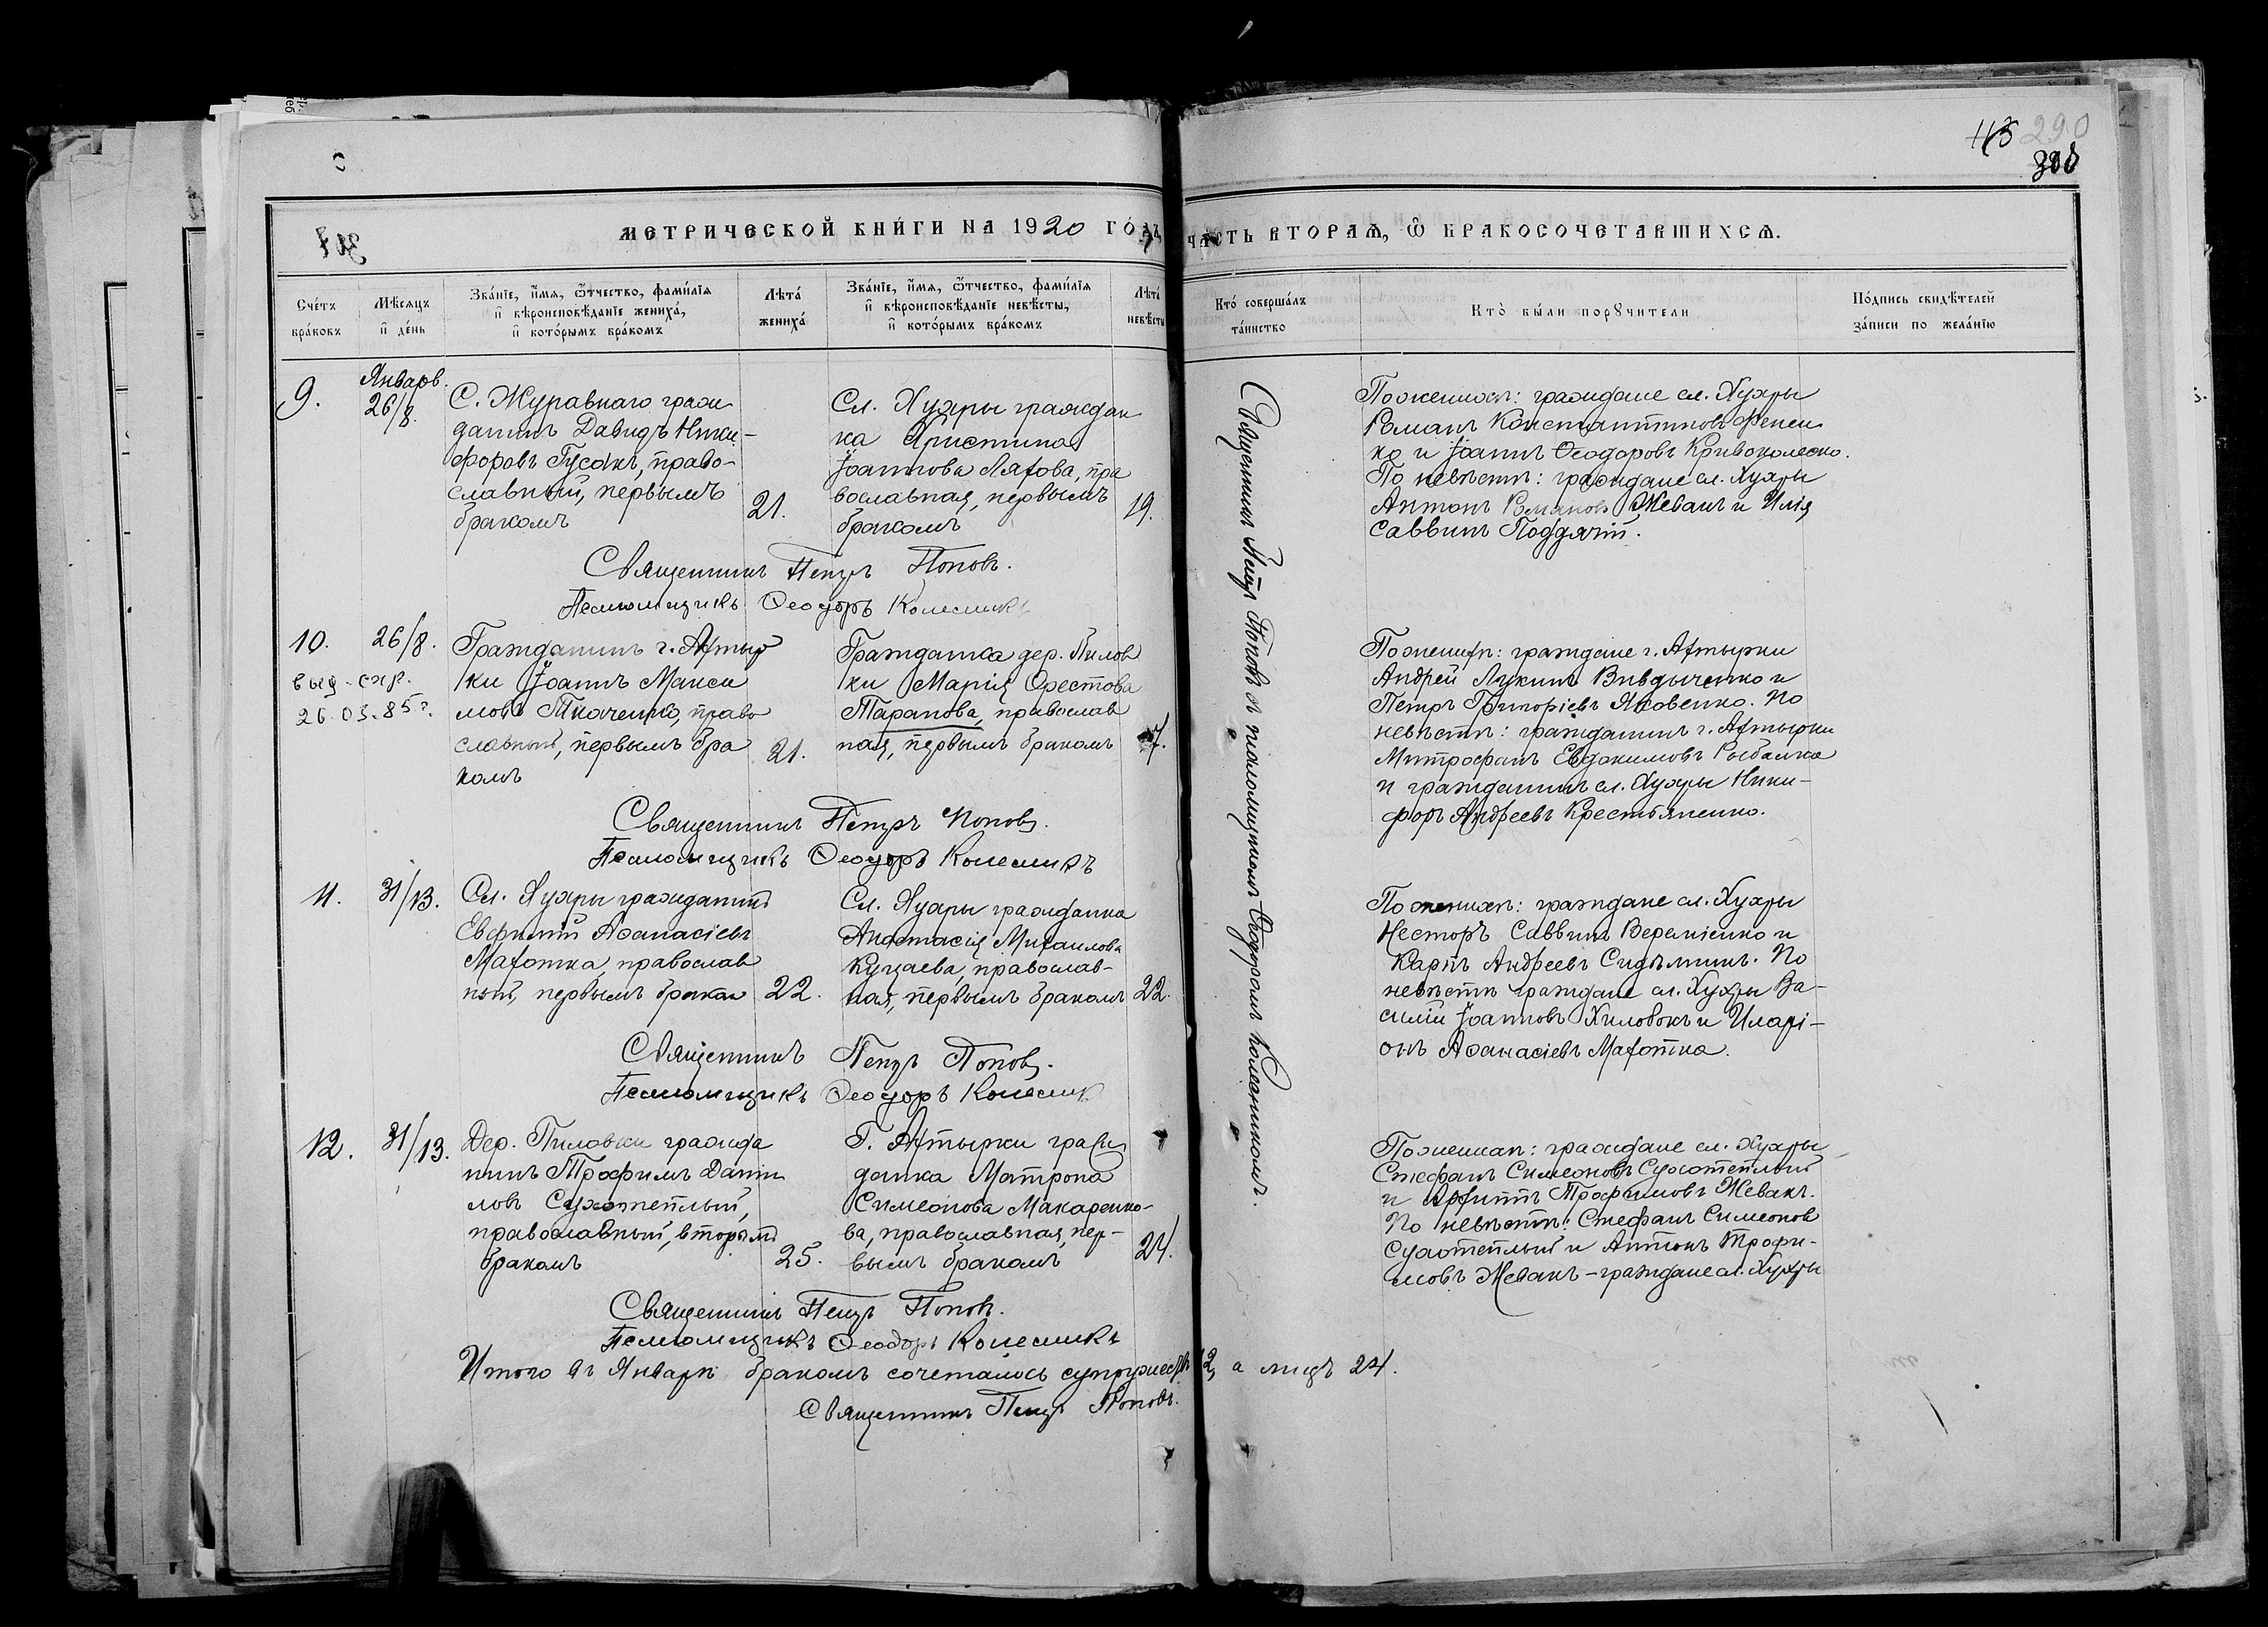 113 290
308
МЕТРИЧЕСКОЙ КНИ́ГИ НА 1920 ГО́ДЪ, ЧАСТЬ ВТОРАѦ, Ѽ БРАКОСОЧЕТАВШИХСѦ.
Сче́тъ бра́ковъ
Мѣ́сяцъ и҆ де́нь
Зва́нїе, и҆́мя, ѻ҆́тчество, фами́лїя и҆ вѣроисповѣ́данїе жениха̀, и҆ кото́рымъ бра́комъ
Лѣта̀ жениха̀
Зва́нїе, и҆́мя, ѻ҆́тчество, фами́лїя и҆ вѣроисповѣ́данїе невѣ́сты, и҆ кото́рымъ бра́комъ
Лѣта̀ невѣ́сты
Кто̀ соверша́лъ та́инство
Кто̀ бы́ли порꙋчи́тели
По́дпись свидѣ́телей за́писи по жела́нїю
Январь.
9.
26/8.
С. Журавнаго граж
данинъ Давидъ Ники-
форовъ Гусакъ, право-
славный, первымъ
бракомъ
21.
Сл. Хухры граждан
ка Христина
Іоаннова Ляхова, пра
вославная, первымъ
бракомъ
19.
Священникъ Петръ Поповъ.
Псаломщикъ Ѳеодоръ Колесникъ
По женихѣ: граждане сл. Хухры
Романъ Константиновъ Фенен
ко и Іоаннъ Ѳеодоровъ Кривоколеско.
По невѣстѣ: граждане сл. Хухры
Антонъ Романовъ Жевакъ и Илія
Саввинъ Поддячій.
10.
26/8.
выд. спр.
26.03.85 г.
Гражданинъ г. Ахтыр
ки Іоаннъ Макси
мовъ Ткаченко, право
славный, первымъ бра
комъ
21.
Гражданка дер. Пилов
ки Марія Орестова
Таранова, православ
ная, первымъ бракомъ
Священникъ Петръ Поповъ.
Псаломщикъ Ѳеодоръ Колесникъ
По женихѣ: граждане г. Ахтырки
Андрей Лукинъ Вивдыченко и
Петръ Григоріевъ Яковенко. По
невѣстѣ: гражданинъ г. Ахтырки
Митрофанъ Евдокимовъ Рыбалка
и гражданинъ сл. Хухры Ники-
форъ Андреевъ Крестьяненко.
11.
31/13.
Сл. Хухры гражданинъ
Евфимій Аѳанасіевъ
Махотка, православ
ный, первымъ браком
22.
Сл. Хухры гражданка
Анастасія Михаилова
Куцаева, православ-
ная, первымъ бракомъ
22.
Священникъ Петръ Поповъ.
Псаломщикъ Ѳеодоръ Колесник
По женихѣ: граждане сл. Хухры
Несторъ Саввинъ Веремієнко и
Карпъ Андреевъ Сидѣлникъ. По
невѣстѣ граждане сл. Хухры Ва-
силій Іоанновъ Хиловокъ и Иларі-
онъ Аѳанасіевъ Махотка.
12.
31/13.
Дер. Пиловки гражда
нинъ Трофимъ Дани
ловъ Сухотеплый,
православный, вторымъ
бракомъ
25.
Г. Ахтырки граж
данка Матрона
Симеонова Макаренко-
ва, православная, пер-
вымъ бракомъ
24.
Священникъ Петръ Поповъ.
Псаломщикъ Ѳеодоръ Колесникъ
По женихѣ: граждане сл. Хухры
Стефанъ Симеоновъ Сухотеплый
и Архиппъ Трофимовъ Жевакъ.
По невѣстѣ: Стефанъ Симеонов
Сухотеплый и Антонъ Трофи-
мовъ Жевакъ – граждане сл. Хухры
Священникъ Петръ Поповъ съ псаломщикомъ Ѳеодоромъ Колесникомъ.
Итого въ Январѣ бракомъ сочеталось супружествъ 12, а лицъ 24.
Священникъ Петръ Поповъ.